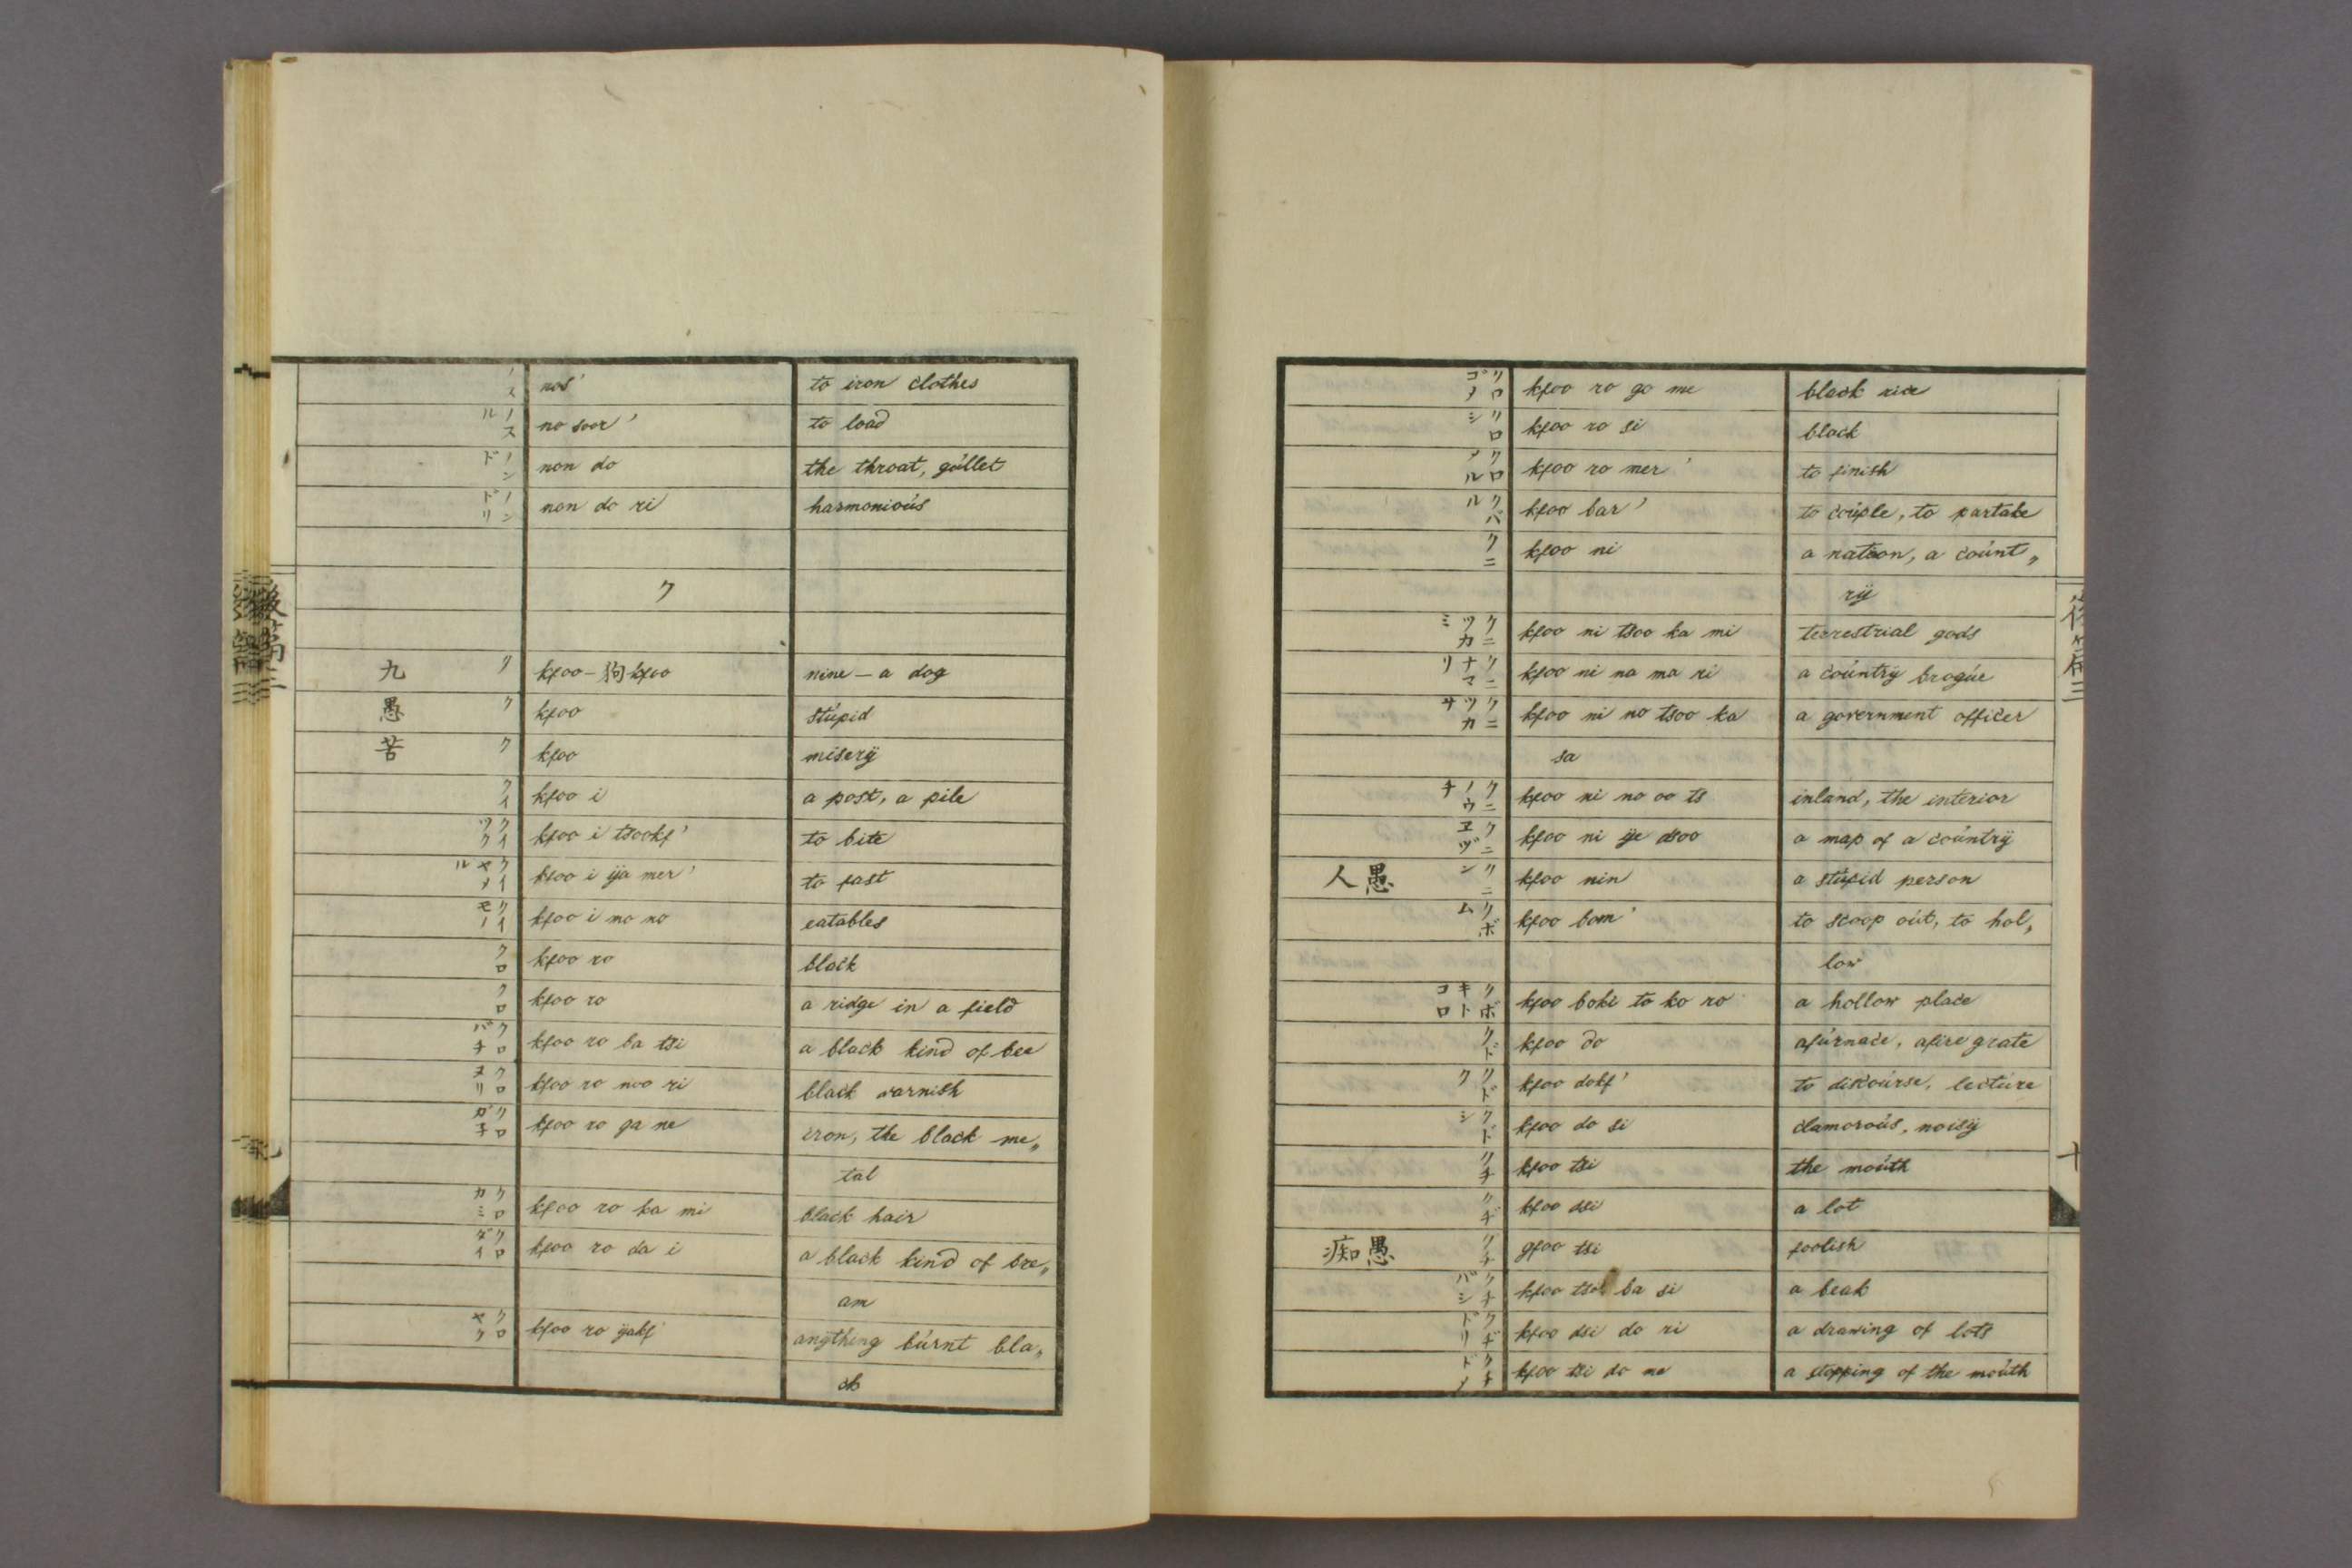 ノス nos' to iron clothes
ノスル no soor' to load
ノンド non do the throat, gúllet
ノンドリ non do ri harmonioús
ク
九 ク kfoo-狗 kfoo nine - a dog
愚 ク kfoo stúpid
苦 ク kfoo miserÿ
クイ kfoo i a post, a pile
クイツク kfoo i tsookf' to bite
クイヤメル kfoo i ÿa mer' to fast
クイモノ kfoo i mo no eatables
クロ kfoo ro black
クロ kfoo ro a ridge in a field
クロバチ kfoo ro ba tsi a black kind of bee
クロヌリ kfoo ro noo ri black varnish
クロガネ kfoo ro ga ne iron, the black me„
tal
クロカミ kfoo ro ka mi black hair
クロダイ kfoo ro da i a black kind of bre„
am
クロヤク kfoo ro ÿakf' anÿthing búrnt bla„
ck
クロゴメ kfoo ro go me black rice
クロシ kfoo ro si black
クロメル kfoo ro mer' to finish
クバル kfoo bar' to coúple, to partake
クニ kfoo ni a nation, a coúnt„
rÿ
クニツカミ kfoo ni tsoo ka mi terrestrial gods
クニナマリ kfoo ni na ma ri a coúntrÿ brogúe
クニツカサ kfoo ni no tsoo ka a government officer
sa
クニノウチ kfoo ni no oo ts inland, the interior
クニヱヅ kfoo ni ÿe dsoo a map of a coúntrÿ
愚人 クニン kfoo nin a stúpid person
クボム kfoo bom' to scoop oút, to hol„
low
クボキトコロ kfoo boki to ko ro a hollow place
クド kfoo do afúrnace, afire grate
クドク kfoo dokf' to discoúrse, lectúre
クドシ kfoo do si clamoroús, noisÿ
クチ kfoo tsi the moúth
クヂ kfoo dsi a lot
愚痴 クチ gfoo tsi foolish
クチバシ kfoo tsi ba si a beak
クヂドリ kfoo dsi do ri a drawing of lots
クチドメ kfoo tsi do me a stopping of the moúth
十